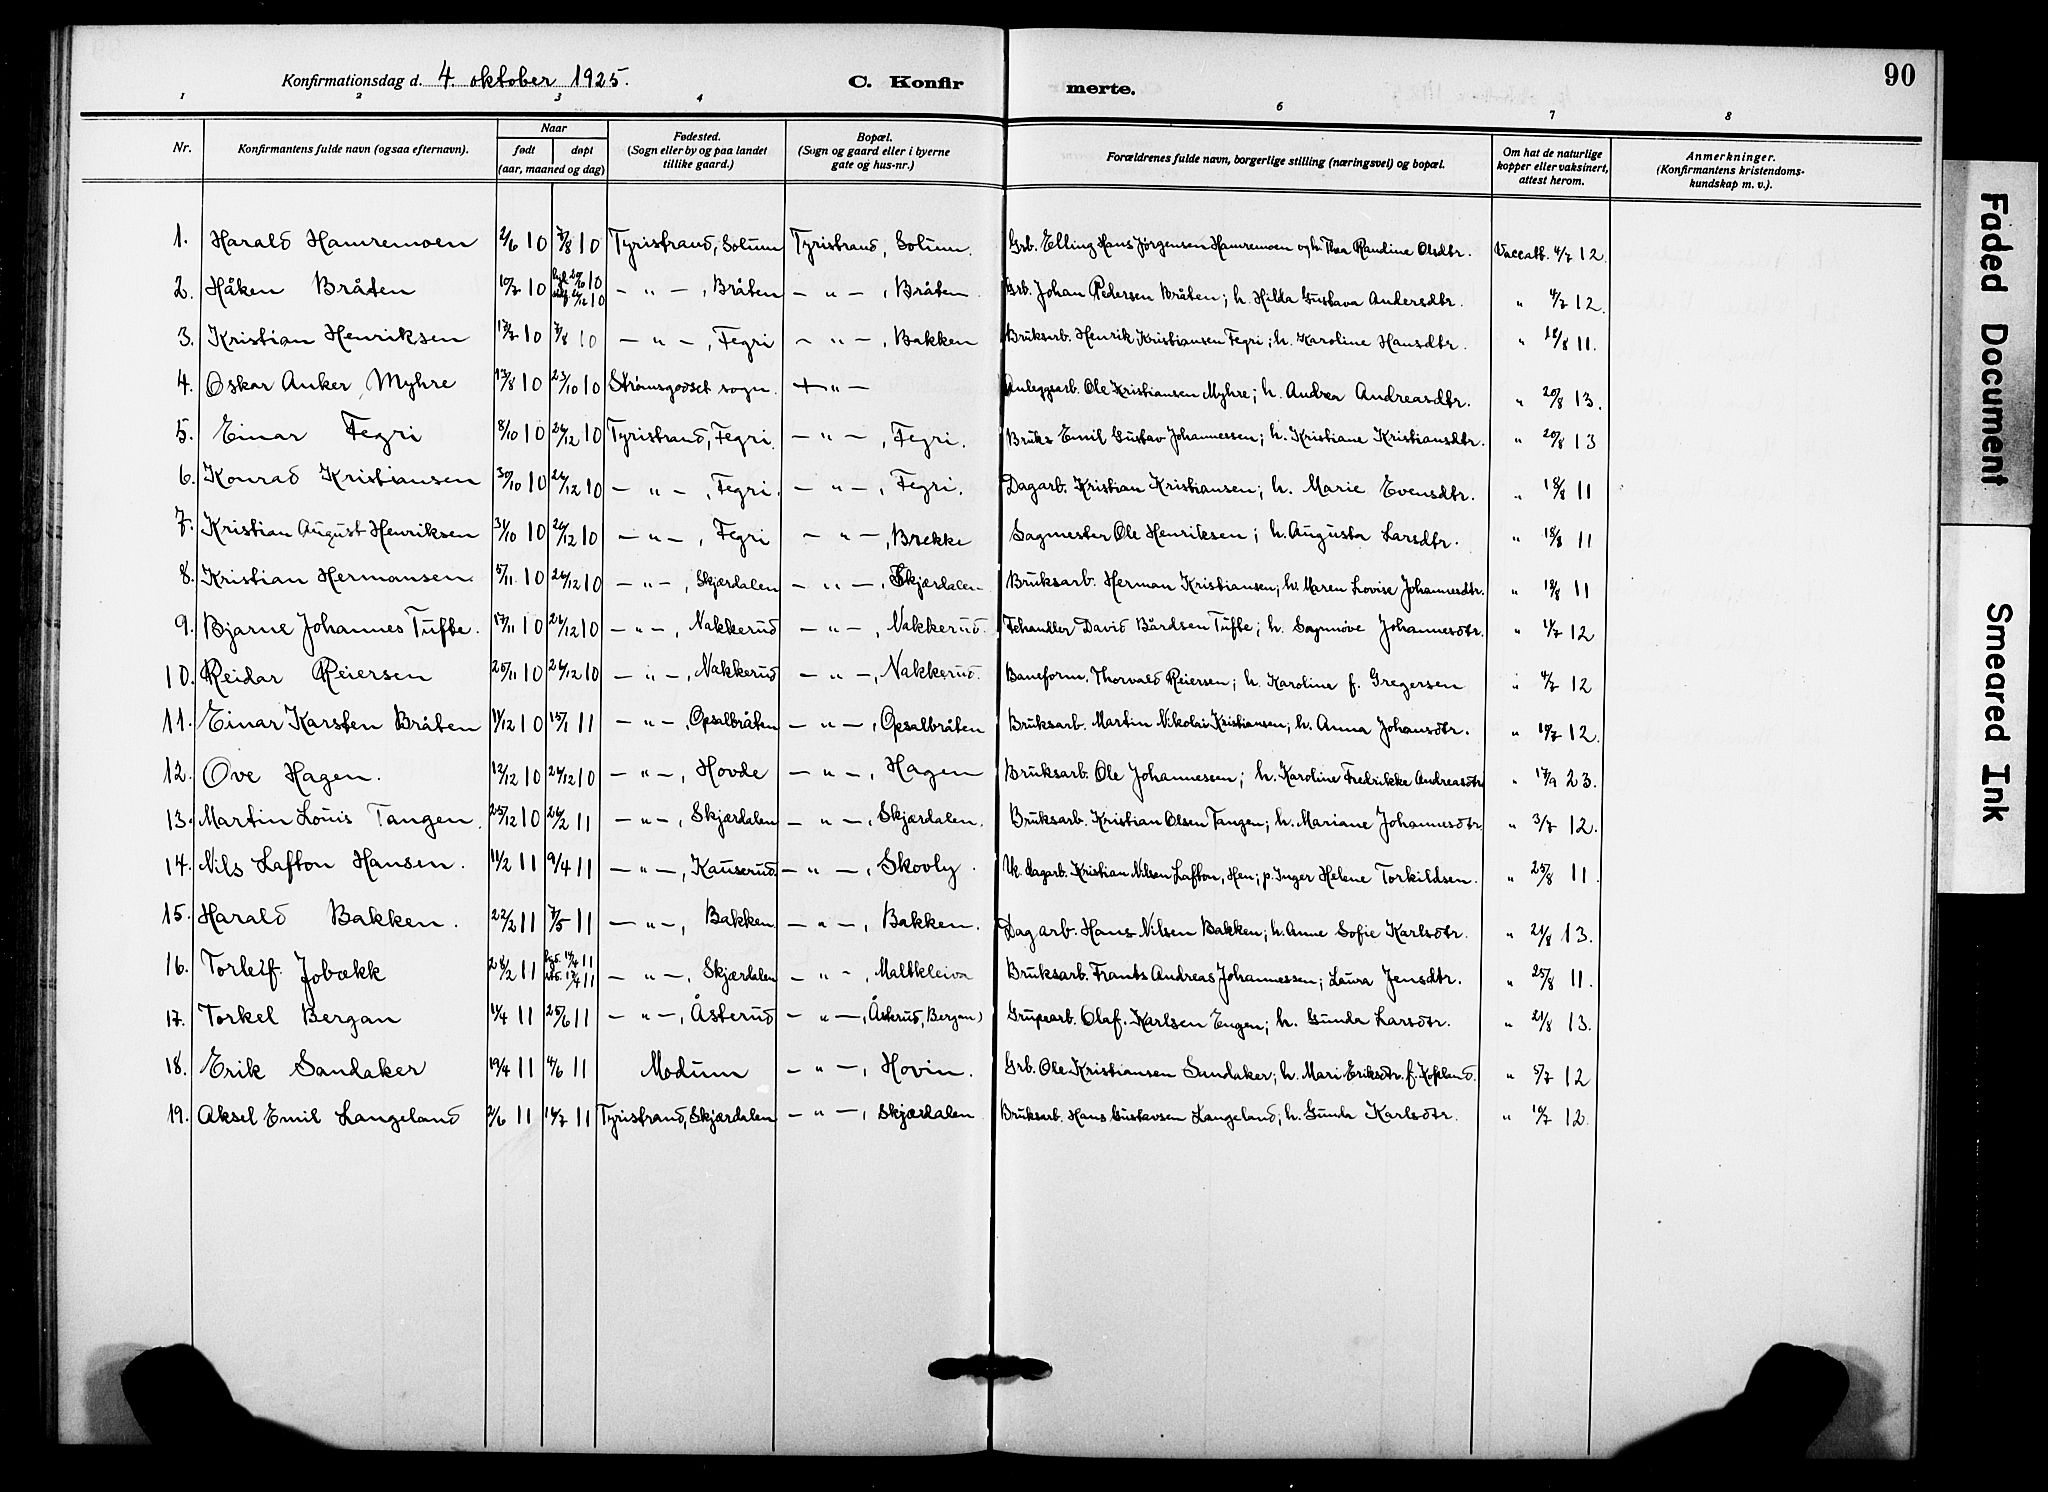 90
Konfirmationsdag d. 4. oktober 1925. C. Konfirmerte.
1 2 3 4 6 7 8
Nr. Konfirmantens fulde navn (ogsaa efternavn). Naar født døpt (aar, maaned og dag) Fødested. (Sogn eller by og paa landet tillike gaard.) Bopæl. (Sogn og gaard eller i byerne gate og hus-nr.) Forældrenes fulde navn, borgerlige stilling (næringsvei) og bopæl. Om hat de naturlige kopper eller vaksinert, attest herom. Anmerkninger. (Konfirmantens kristendomskundskap m. v.).
1. Harald Hamremoen 2/6 10 7/8 10 Tyristrand, Solum Tyristrand, Solum. Grb. Elling Hans Jørgensen Hamremoen og h. Thea Randine Olsdtr. Vaccatt. 4/7 12.
2. Håken Bråten 10/7 10 10 26/12 10 — " — , Bråten — " — , Bråten. Grb. Johan Pedersen Bråten; h. Hilda Gustava Andersdtr. " 4/7 12.
3. Kristian Henriksen 17/7 10 7/8 10 — " — , Fegri — " — , Bakken Bruksarb. Henrik Kristiansen Fegri; h. Karoline Hansdtr. " 18/8 11.
4. Oskar Anker Myhre 13/8 10 23/10 10 Strømsgodset sogn. — " — Anleggsarb. Ole Kristiansen Myhre; h. Andrea Andreasdtr. " 20/8 13.
5. Einar Fegri 8/10 10 26/12 10 Tyristrand, Fegri. — " — , Fegri. Bruks Emil Gustav Johannessen; h. Kristiane Kristiansdtr. " 20/8 13
6. Konrad Kristiansen 30/10 10 26/12 10 — " — , Fegri. — " — , Fegri. Dagarb. Kristian Kristiansen; h. Marie Evensdtr. " 18/8 11
7. Kristian August Henriksen 31/10 10 26/12 10 — " — , Fegri — " — , Brekke Sagmester Ole Henriksen; h. Augusta Larsdtr. " 18/8 11
8. Kristian Hermansen. 5/11 10 26/12 10 — " — , Skjærdalen — " — , Skjærdalen Bruksarb. Herman Kristiansen; h. Maren Lovise Johannesdtr. " 18/8 11
9. Bjarne Johannes Tufte. 17/11 10 26/12 10 — " — , Nakkerud — " — , Nakkerud. Fehandler David Bårdsen Tufte; h. Sagnnøve Johannesdtr. " 4/7 12
10. Reidar Reiersen 25/11 10 26/12 10 — " — , Nakkerud — " — , Nakkerud. Baneform. Thorvald Reiersen; h. Karoline f. Gregersen " 4/7 12
11. Einar Karsten Bråten 11/12 10 15/1 11 — " — , Opsalbråten — " — , Opsalbråten Bruksarb. Martin Nikolai Kristiansen; h. Anna Johansdtr. " 10/7 12.
12. Ove Hagen. 12/12 10 26/12 10 — " — , Hovde — " — , Hagen Bruksarb. Ole Johannessen; h. Karoline Fredrikke Andreasdtr " 17/9 23.
13. Martin Louis Tangen. 25/12 10 26/2 11 — " — , Skjærdalen — " — , Skjærdalen. Bruksarb. Kristian Olsen Tangen; h. Mariane Johannesdtr. " 3/7 12.
14. Nils Lafton Hansen. 11/2 11 9/4 11 — " — , Kauserud — " — , Skovly. Uk. dagarb. Kristian Nilsen Lafton, Hen; p. Inger Helene Torkildsen. " 25/8 11.
15. Harald Bakken. 22/2 11 7/5 11 — " — , Bakken — " — , Bakken. Dagarb. Hans Nilsen Bakken; h. Anne Sofie Karlsdtr. " 21/8 13.
16. Torleif Jobækk 28/2 11 11 17/4 11 — " — , Skjærdalen — " — , Maltkleiva Bruksarb. Frants Andreas Johannessen; Laura Jensdtr. " 25/8 11.
17. Torkel Bergan 11/4 11 25/6 11 — " — , Åsterud — " — , Åsterud, Bergan) Grupearb. Olaf Karlsen Engen; h. Gunda Larsdtr. " 21/8 13.
18. Erik Sandaker 19/4 11 4/6 11 Modum — " — , Hovin. Grb. Ole Kristiansen Sandaker; h. Mari Eriksdtr. f. " 5/7 12
19. Aksel Emil Langeland 2/6 11 16/7 11 Tyristrand, Skjærdalen — " — , Skjærdalen Bruksarb. Hans Gustavsen Langeland; h. Gunda Karlsdtr. " 10/7 12.
Faded Document
Smeared Ink